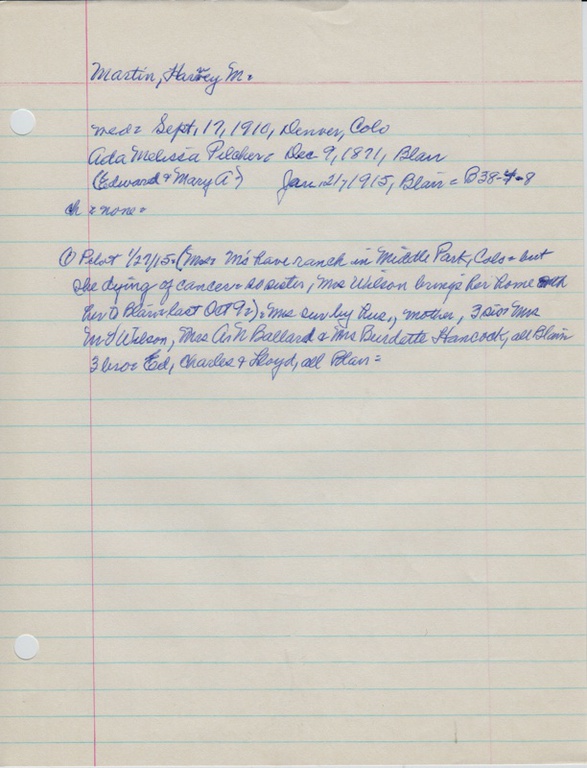 Martin, Harvey M.
med= Sept, 17, 1910, Denver, Colo
Ada Melissa Pilcher= Dec 9, 1871, Blair
(Edward & Mary A) Jan 1915, Blair = B38-4-8
ch = none =
① Pilot 1/27/15= (Mr & M's have ranch in Middle Park, Colo = but
she dying of cancer = so sister, Mrs Wilson brings her home with
her to Blair last Oct 9=) = Mrs sur by hus., mother, 3 sis= Mrs
Wilson, Mrs A N Ballard & Mrs Burdette Hancock, all Blair
3 bro= Ed, Charles & Lloyd, all Blair =